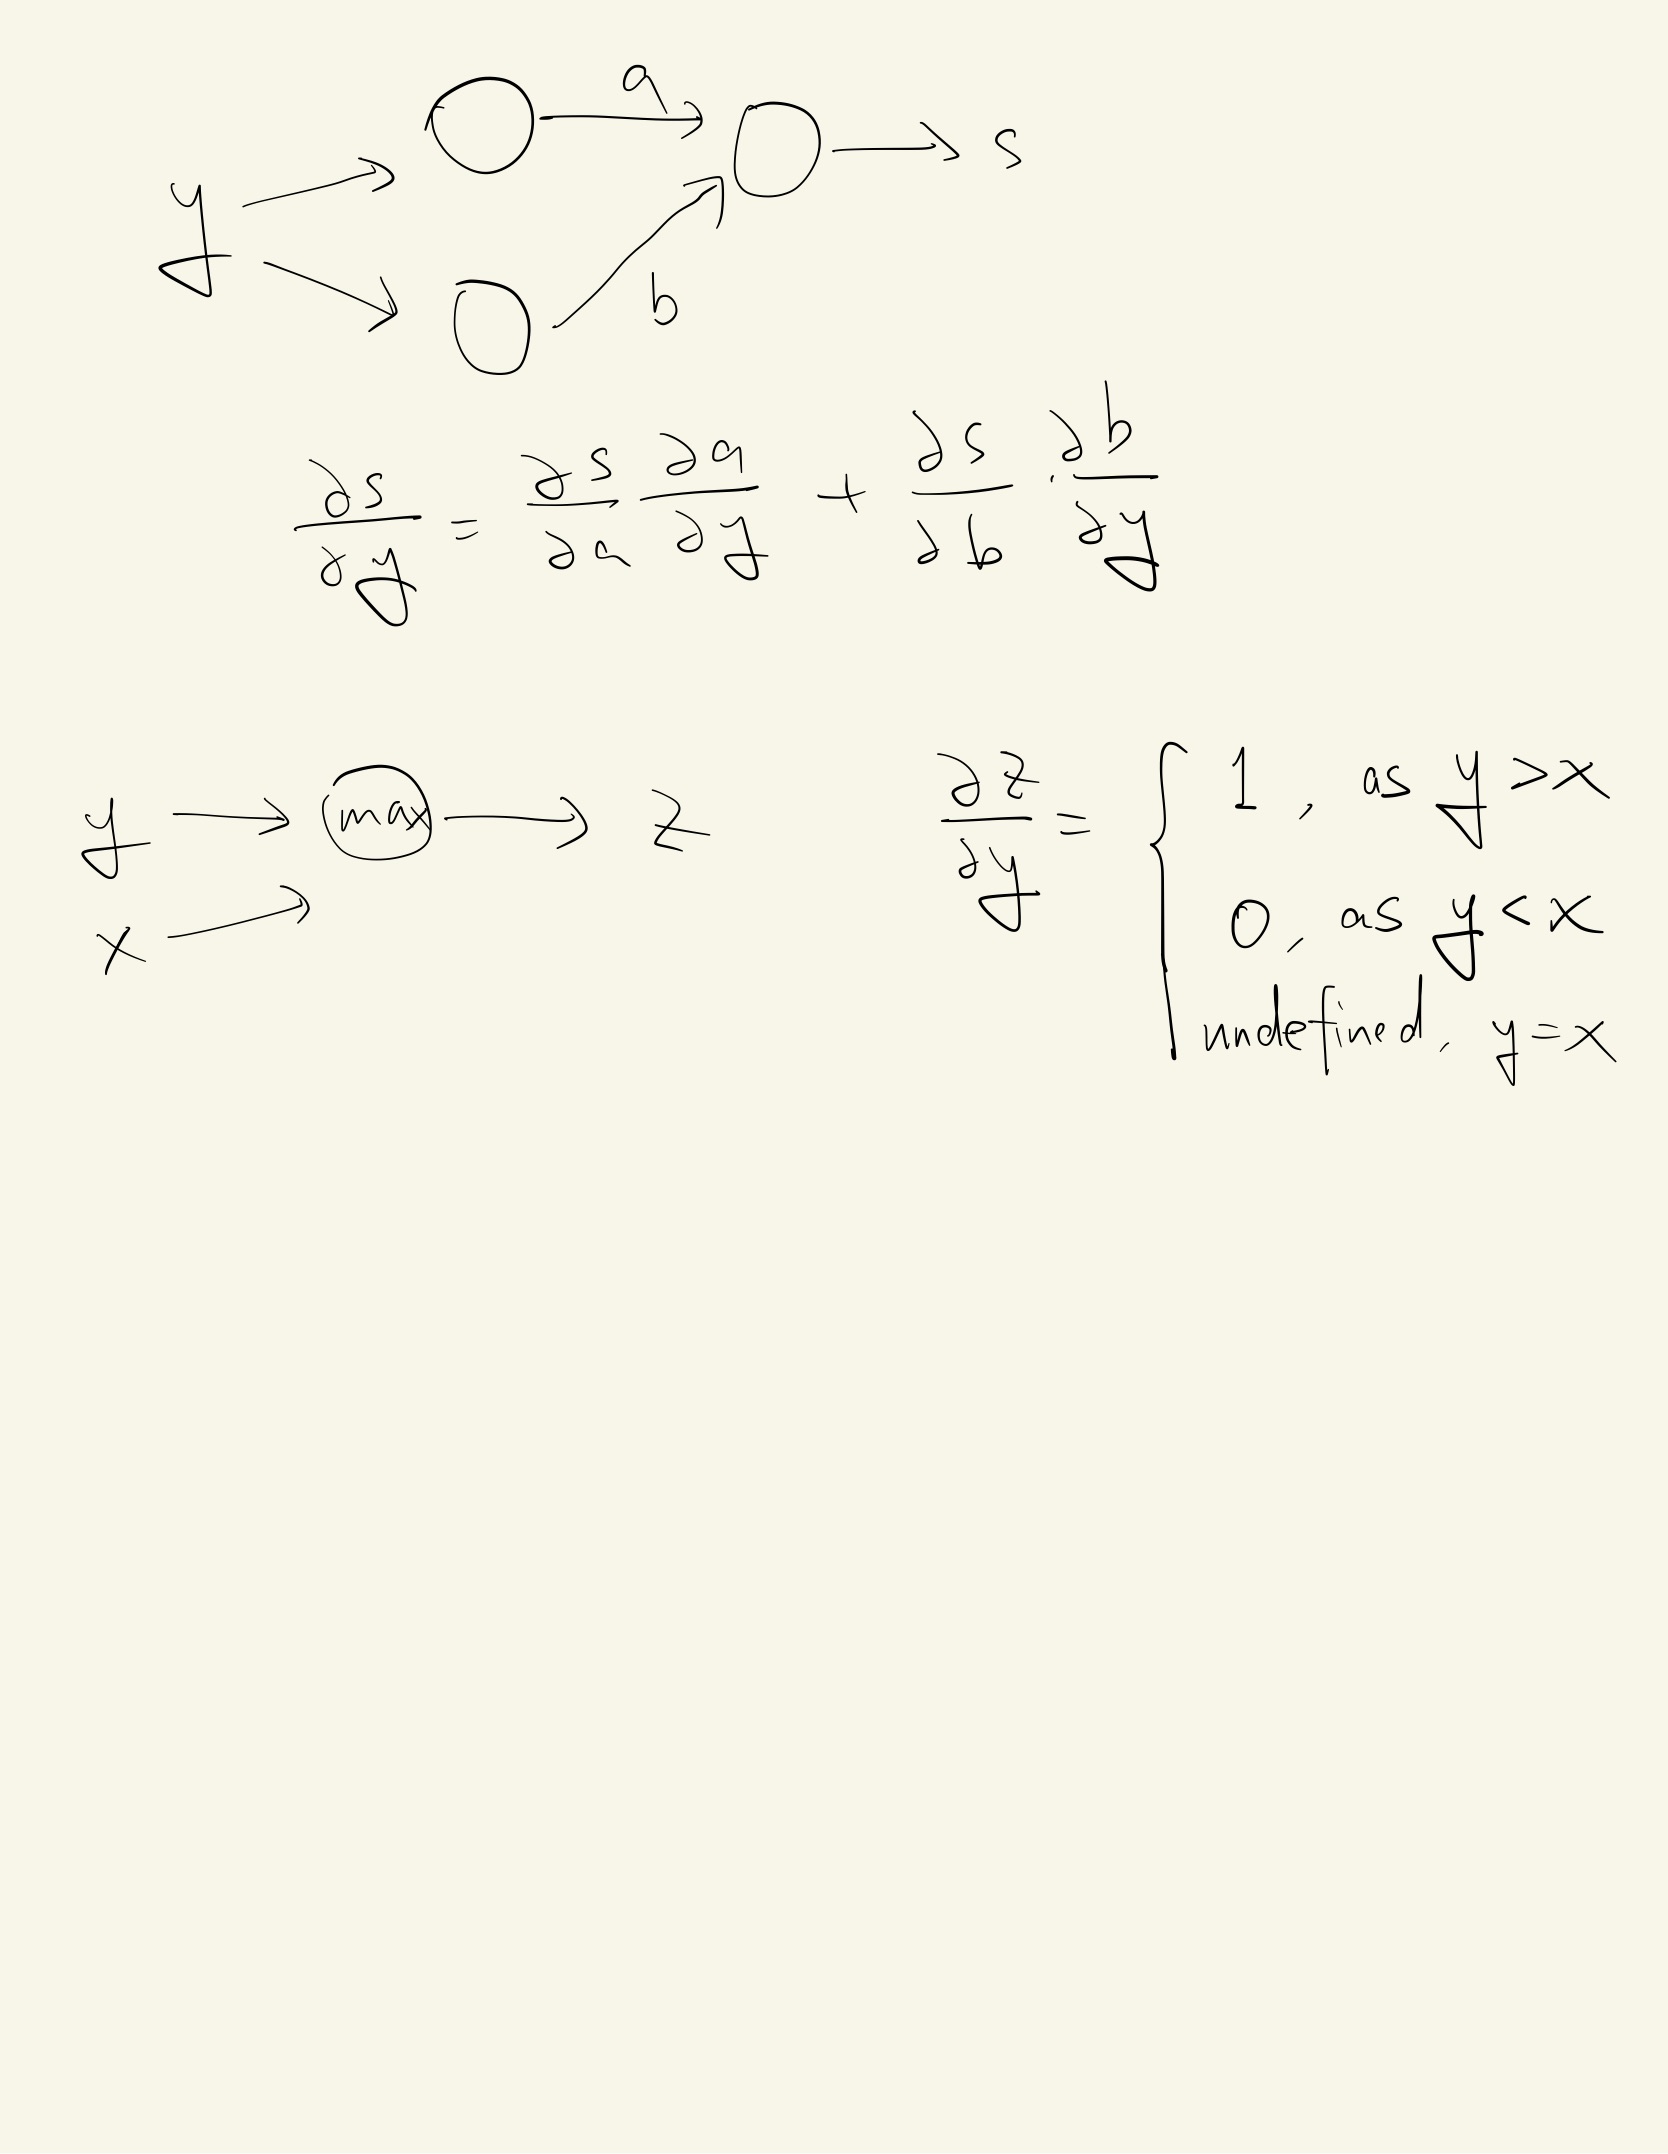 a
y → → s
b
∂s/∂y = ∂s/∂a ∂a/∂y + ∂s/∂b · ∂b/∂y
y → max → z
x →
∂z/∂y = { 1, as y > x
0, as y < x
undefined, y = x